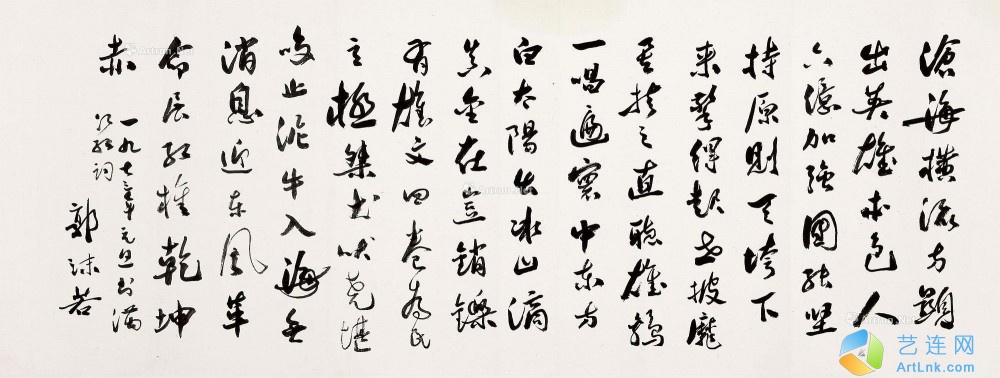 滄海橫流方顯
出英雄本色人
六億加強團結堅
持原則天垮下
來擎得起世披靡
矣扶之直聽雄鷄
一唱遍寰中東方
白太陽出冰山滴
真金在豈銷鑠
有雄文四卷為民
立極桀犬吠堯堪
笑止泥牛入海無
消息迎東風革
命展紅旗乾坤
赤
一九七年元旦書滿
江紅詞
郭沫若
艺连网
ArtLnk.com